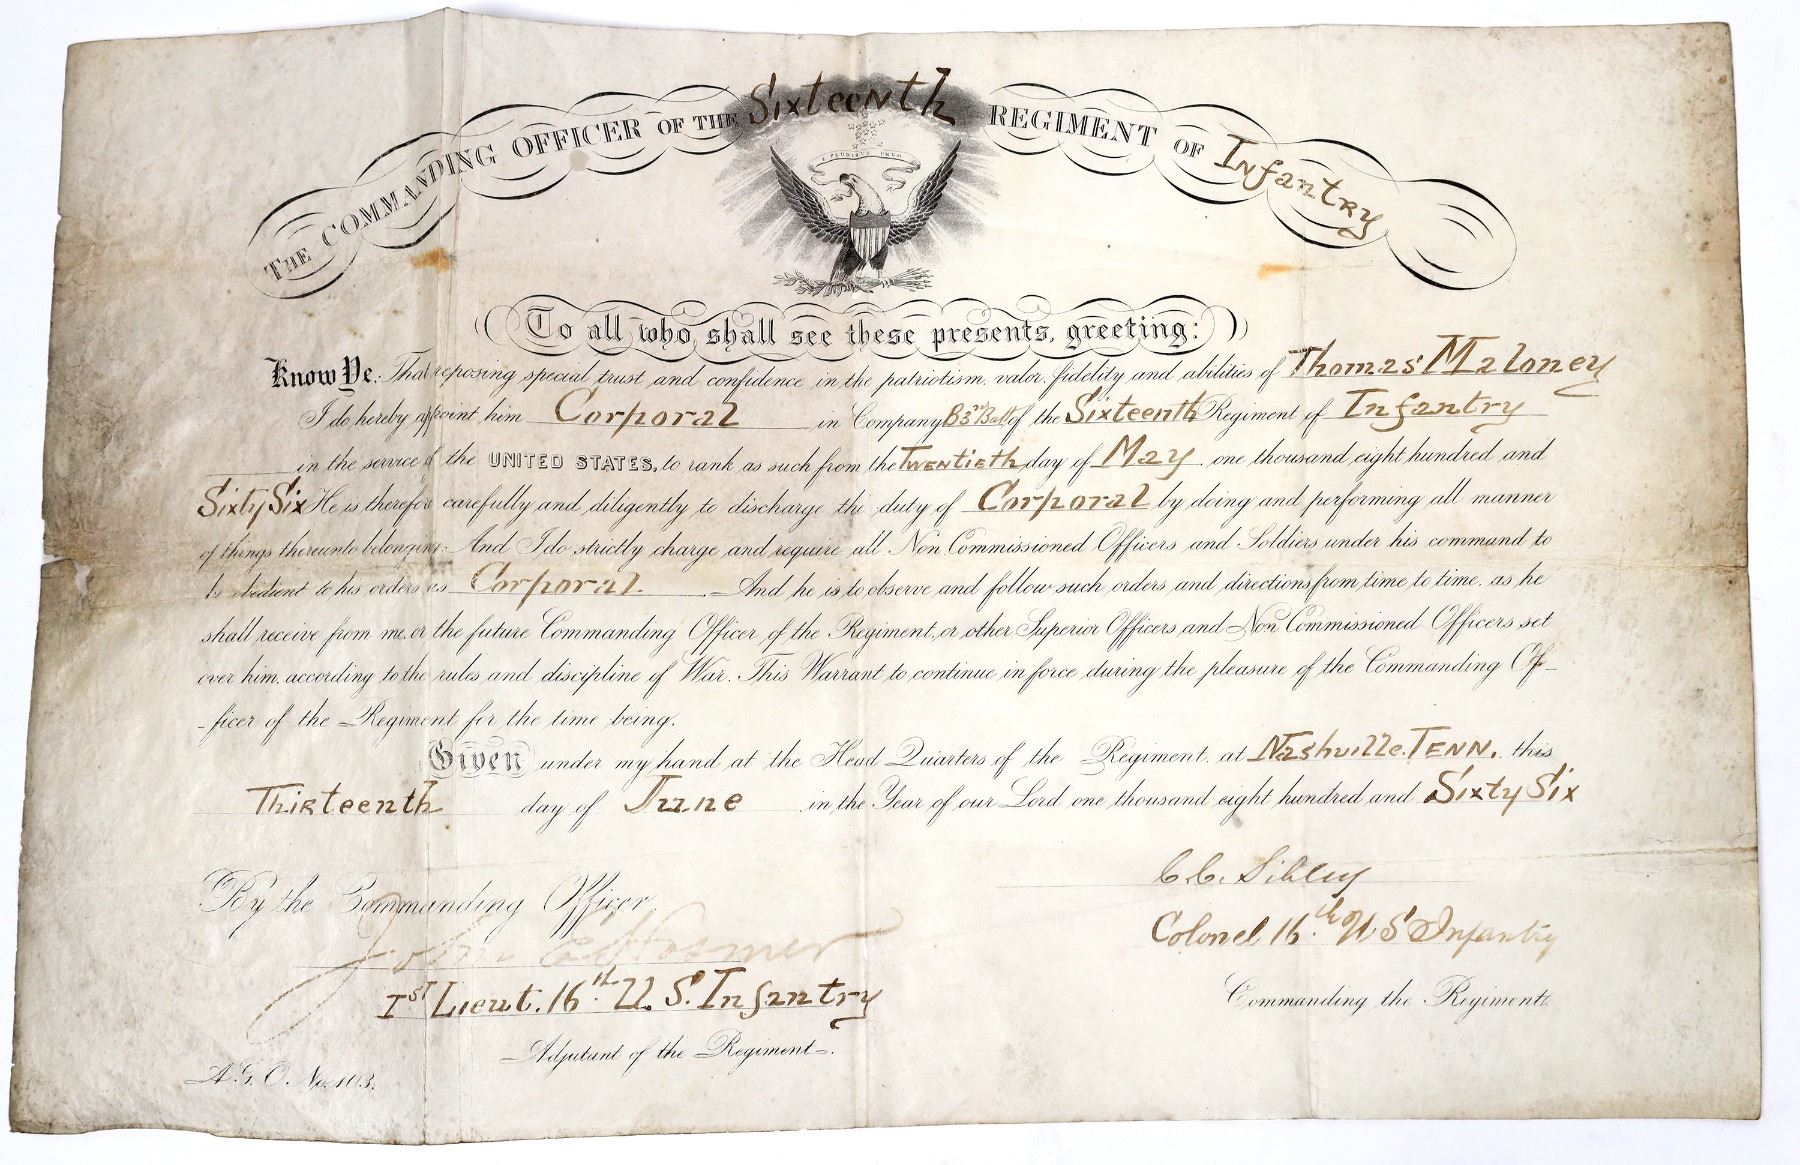 THE COMMANDING OFFICER OF THE Sixteenth REGIMENT OF Infantry
E PLURIBUS UNUM
To all who shall see these presents, greeting:
Know Ye: That reposing special trust and confidence in the patriotism, valor, fidelity and abilities of Thomas Maloney
I do hereby appoint him Corporal in Company B 3rd Batt of the Sixteenth Regiment of Infantry
in the service of the UNITED STATES, to rank as such from the Twentieth day of May one thousand eight hundred and
Sixty Six He is therefore carefully and diligently to discharge the duty of Corporal by doing and performing all manner
of things thereunto belonging. And I do strictly charge and require all Non Commissioned Officers and Soldiers under his command to
be obedient to his orders as Corporal And he is to observe and follow such orders and directions from time to time, as he
shall receive from me, or the future Commanding Officer of the Regiment, or other Superior Officers and Non Commissioned Officers set
over him, according to the rules and discipline of War. This Warrant to continue in force during the pleasure of the Commanding Of-
-ficer of the Regiment for the time being.
Given under my hand at the Head Quarters of the Regiment, at Nashville. TENN. this
Thirteenth day of June in the Year of our Lord one thousand eight hundred and Sixty Six
C.C. Sibley
By the Commanding Officer,
Colonel 16th U S Infantry
John Hosmer
1st Lieut. 16th. U. S. Infantry
Commanding the Regiment.
Adjutant of the Regiment.
A.G.O. No. 103.